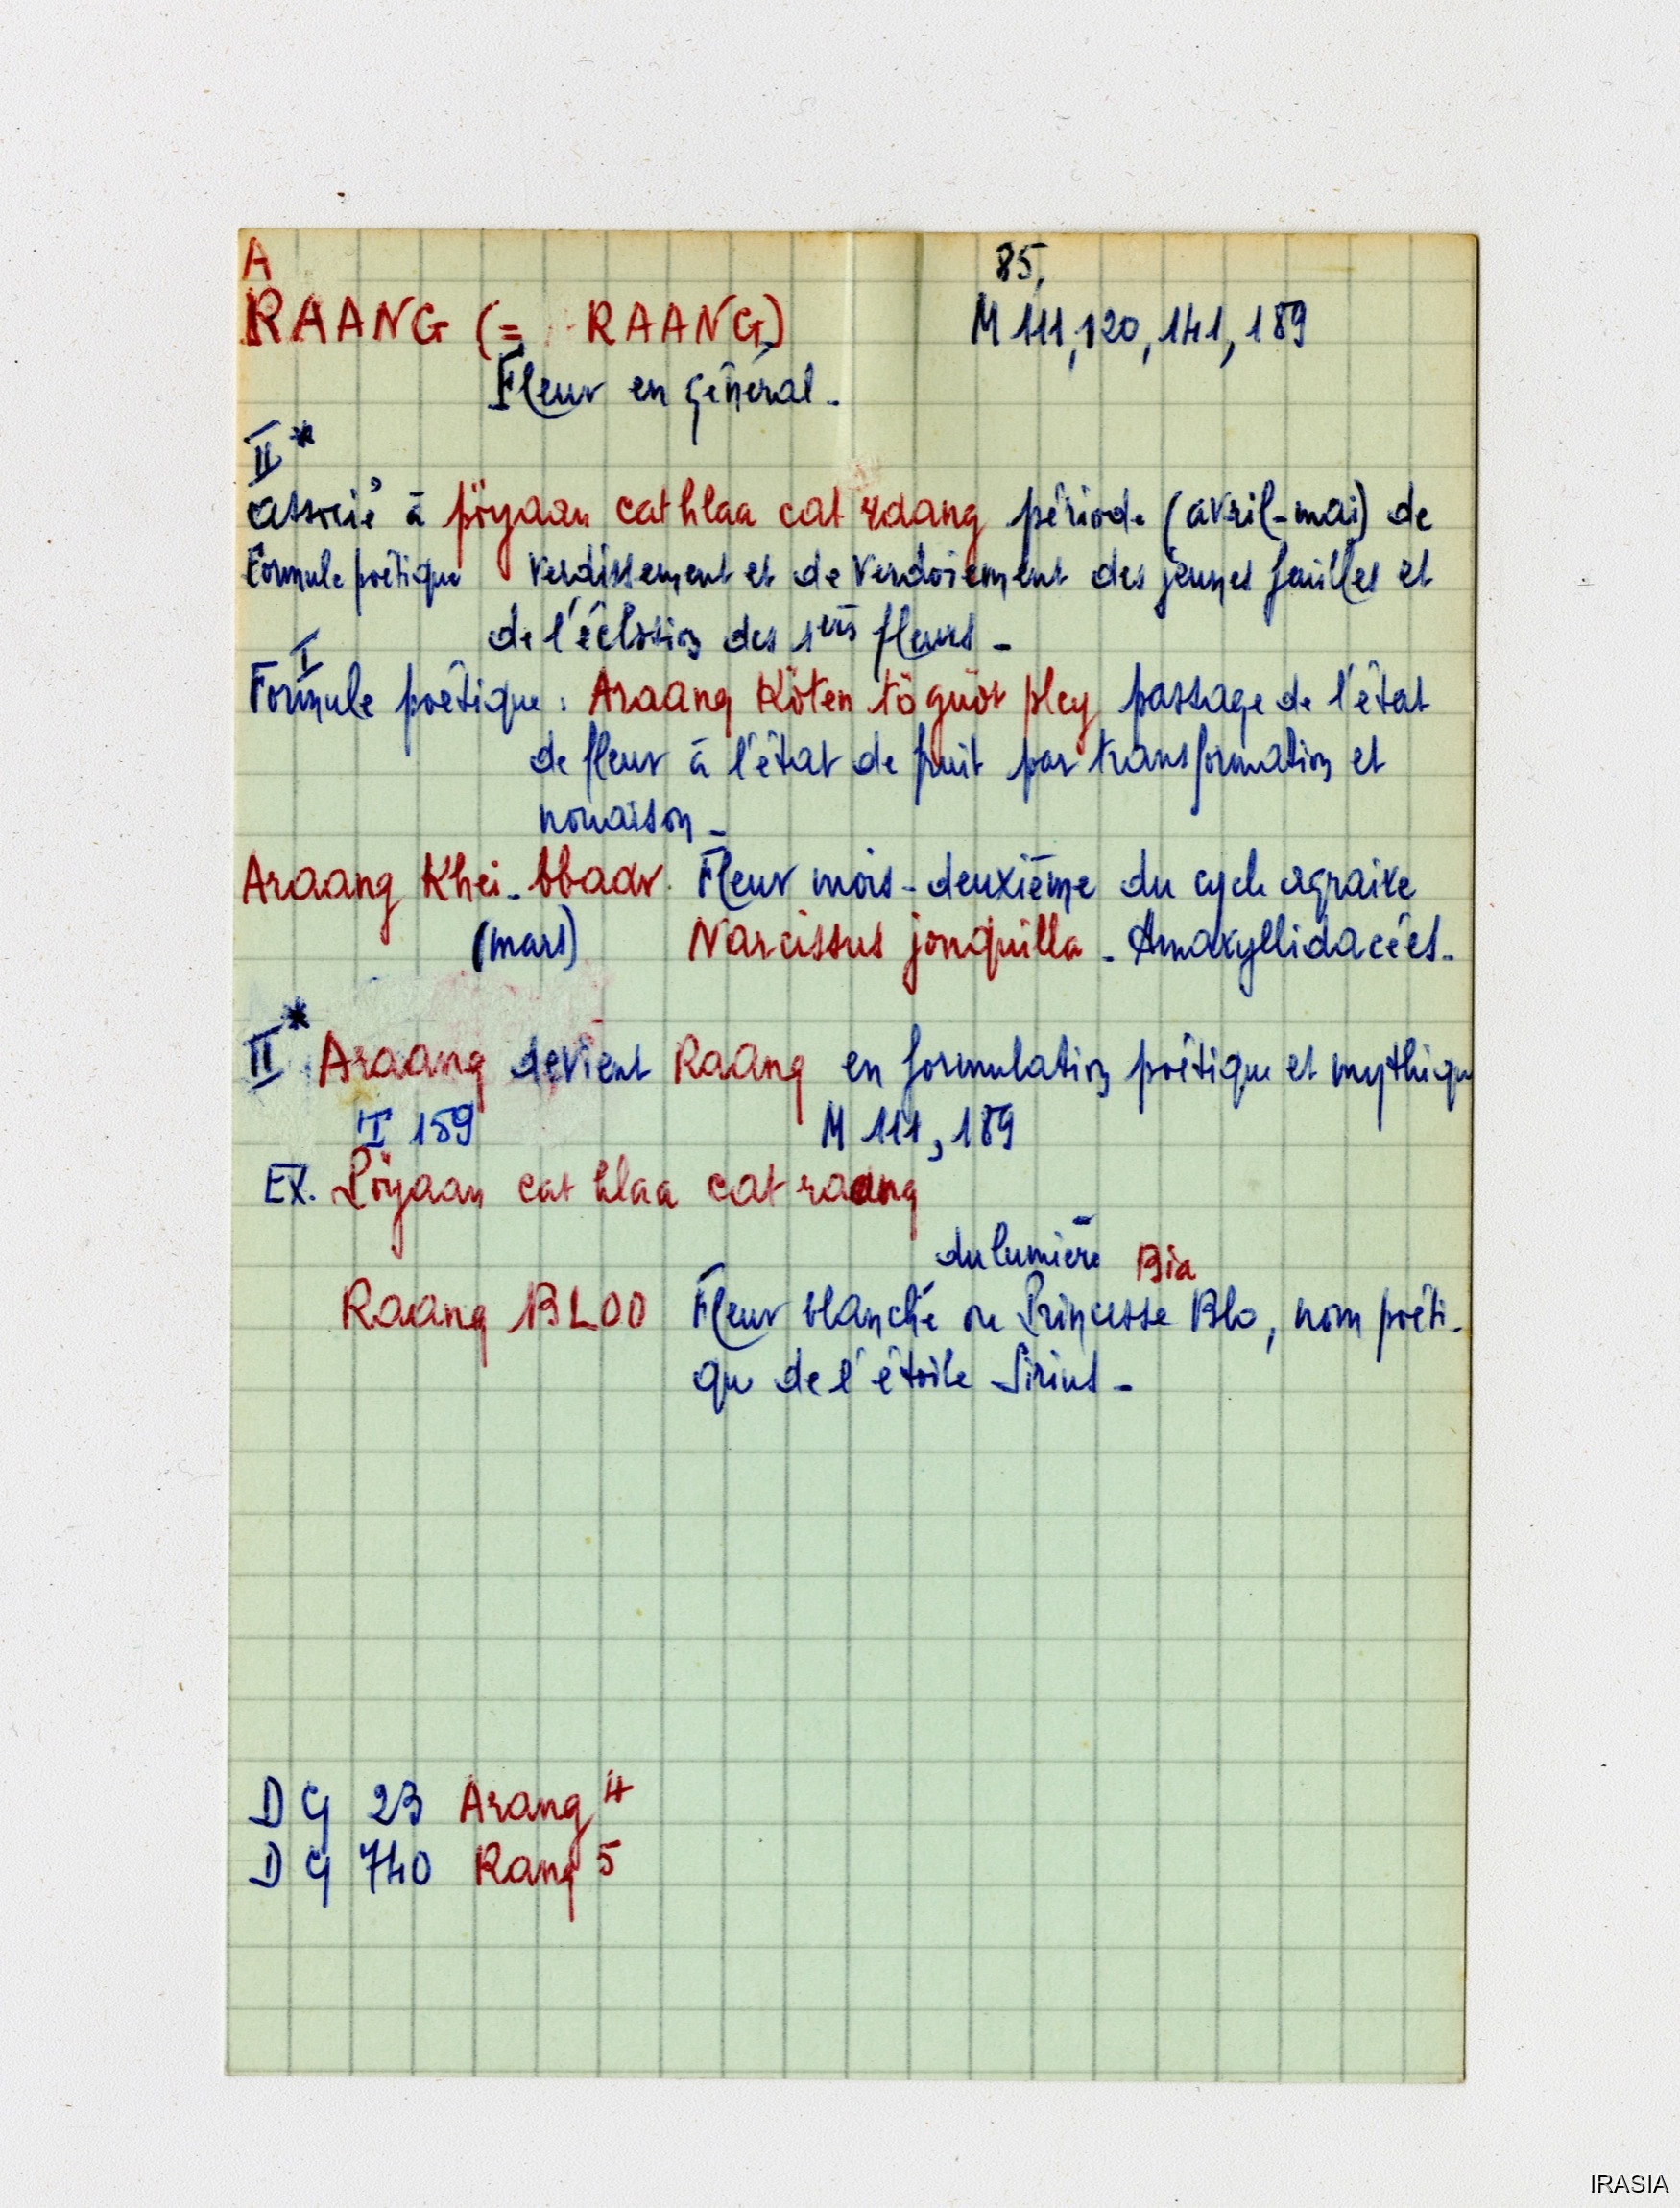 A
85,
RAANG (= RAANG)
M 111, 120, 141, 189
Fleur en général.
II*
associé à pöyaan cat hlaa cat raang période (avril-mai) de
Formule poétique verdissement et de verdoiement des jeunes feuilles et
de l'éclosion des 1ers fleurs -
I
Formule poétique : Araang Köten tö guöt pley passage de l'état
de fleur à l'état de fruit par transformation et
nouaison -
Araang Khei-bbaar. Fleur mois-deuxième du cycle agraire
(mars) Narcissus jonquilla - Amaryllidacées.
II* Araang devient Raang en formulation poétique et mythique
I 159 M 111, 189
Ex. Pöyaan cat hlaa cat raang
du lumière Bia
Raang BLOO Fleur blanche ou Princesse Blo, nom poéti-
que de l'étoile Sirius -
DG 23 Arang 4
DG 740 Rang 5
IRASIA